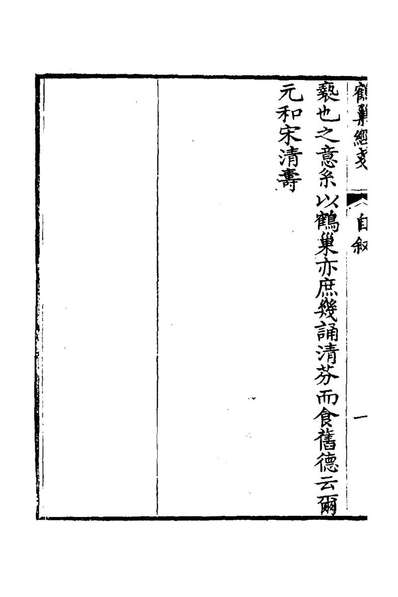 鶴巢經箋
自叙
一
褻也之意系以鶴巢亦庶幾誦清芬而食舊德云爾
元和宋清壽